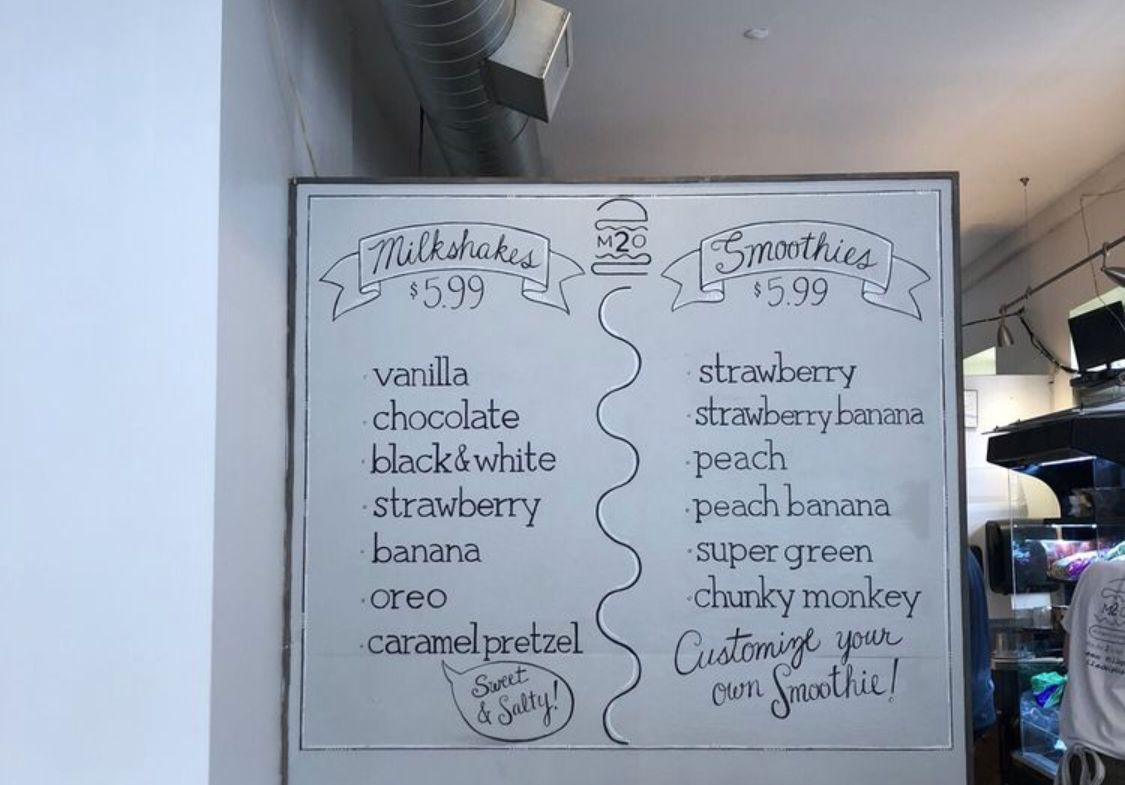 M2O
Milkshakes
$5.99
vanilla
chocolate
black&white
strawberry
banana
oreo
caramel pretzel
Sweet
& Salty!
Smoothies
$5.99
strawberry
strawberry banana
peach
peach banana
super green
chunky monkey
Customize your
own Smoothie!